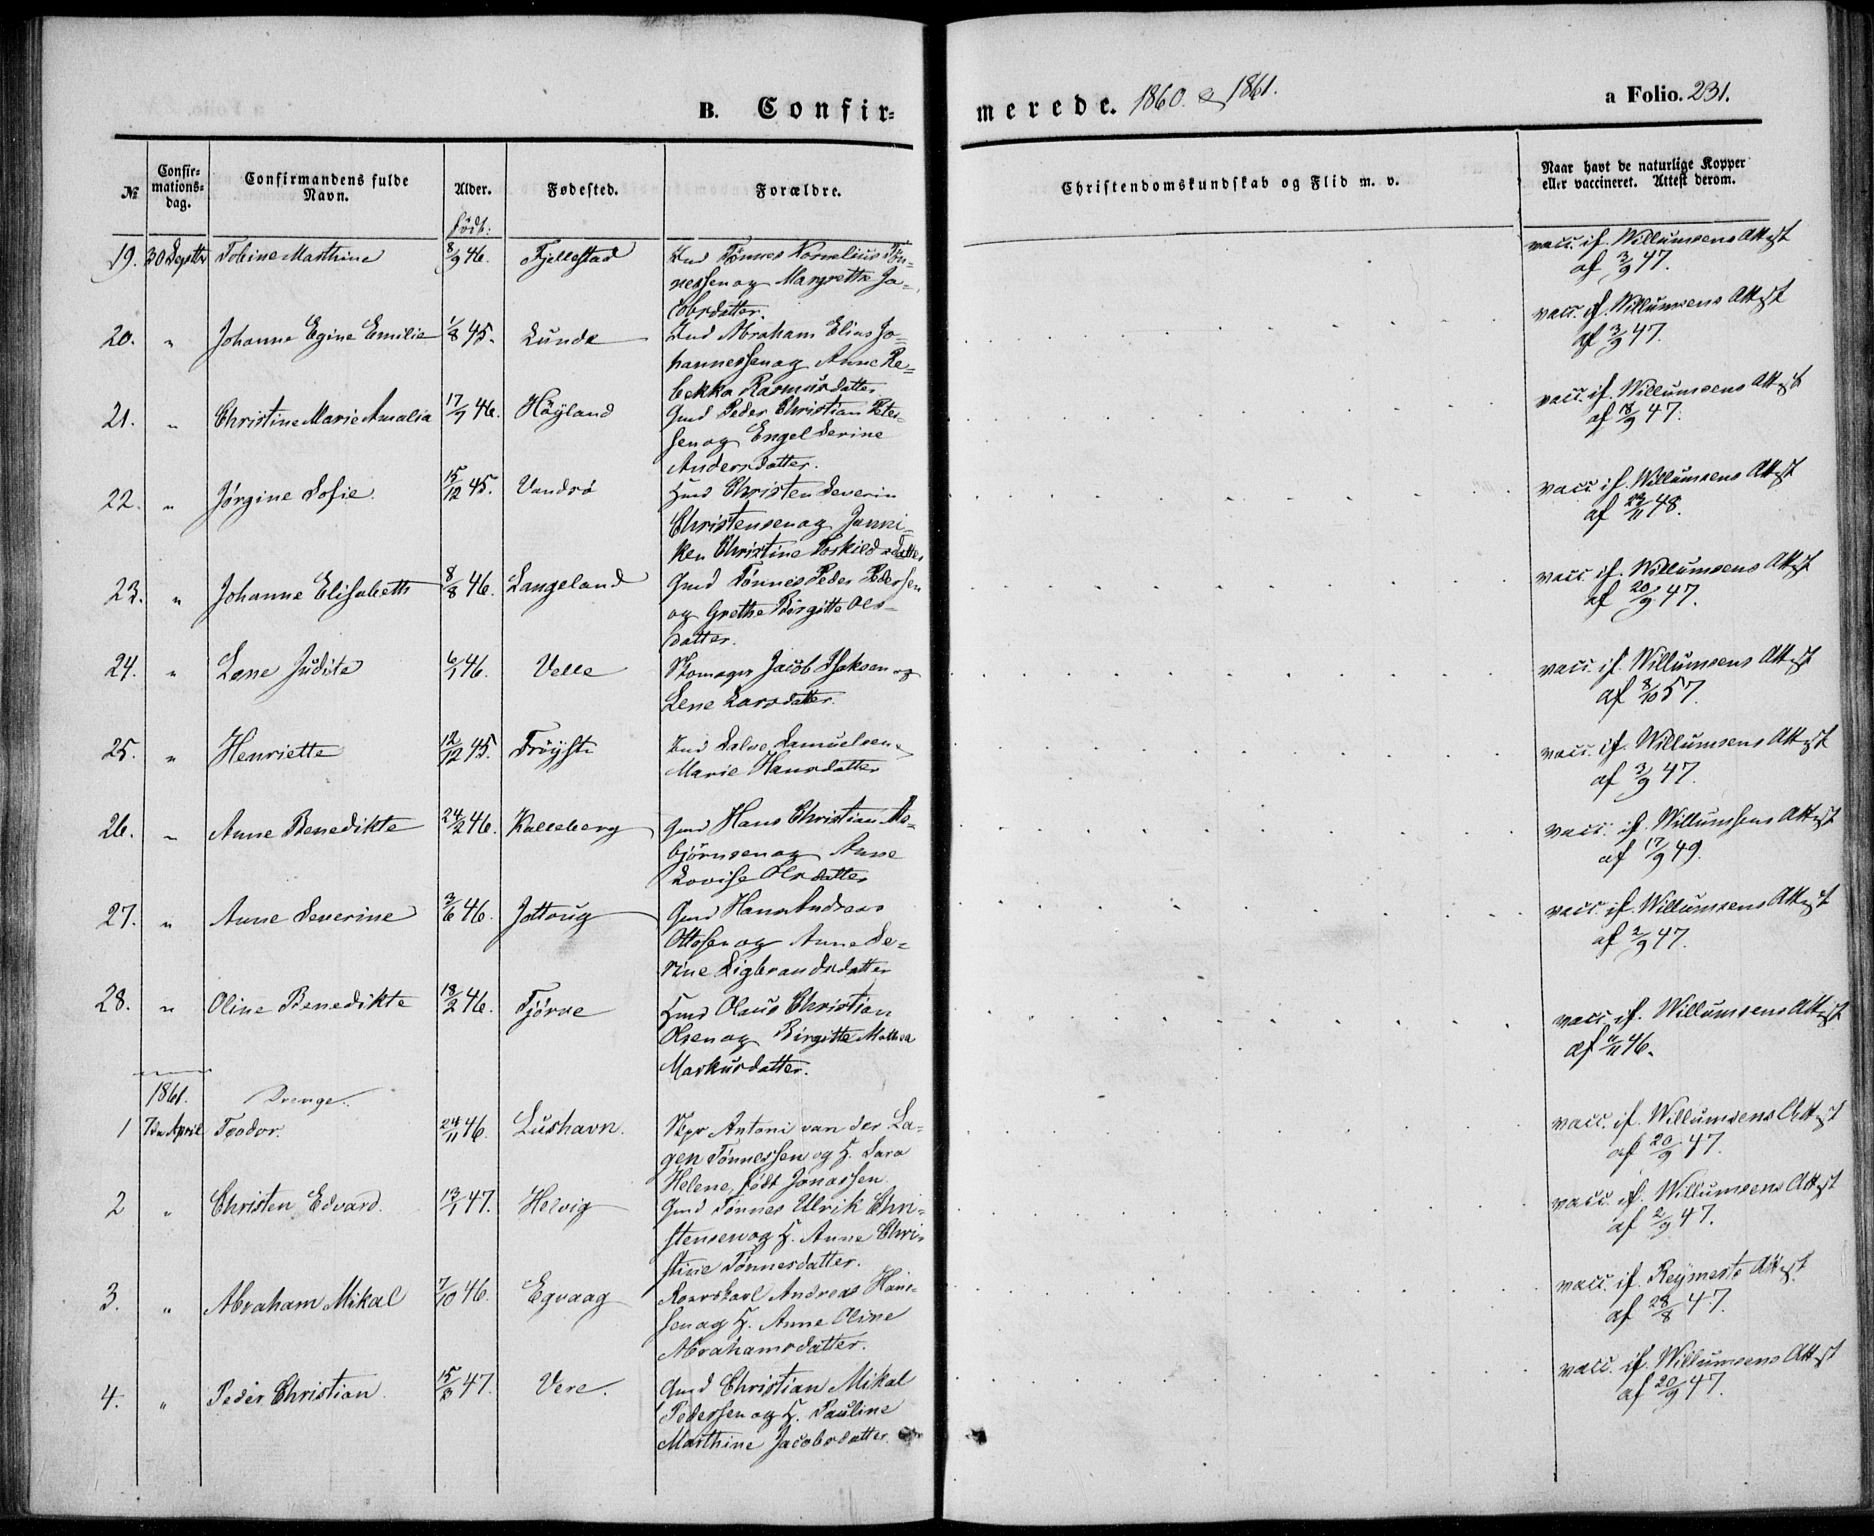 B. Confirmerede. 1860. & 1861.
a Folio. 231.
№
Confirmationsdag.
Confirmandens fulde Navn.
Alder.
Fødested.
Forældre.
Christendomskundskab og Flid m. v.
Naar havt de naturlige Kopper eller vaccineret. Attest derom.
født:
19. 30 Septbr Tobine Marthine 8/9 46. Fjellestad Tønnes Kornelius Tønnessen og Margrethe Jacobsdatter. vacc. if. Willumsens Attest af 3/9 47.
20. " Johanne Egine Emilie 1/8 45. Lunde Abraham Elias Johannessen og Anne Rebekka Rasmusdatter vacc. if. Willumsens Attest af 3/9 47.
21. " Christine Marie Amalia 17/7 46. Höyland Gmd Peder Christian Petersen og Engel Serine Andersdatter. vacc. if. Willumsens Attest af 18/9 47.
22. " Jørgine Sofie 15/12 45. Vandsö Hmd Christen Severin Christensen og Janniken Christine Torkildsdatter vacc. if. Willumsens Attest af 22/11 48.
23. " Johanne Elisabeth 8/8 46. Langeland Gmd Tönnes Peder Pedersen og Grethe Birgitte Olsdatter. vacc. if. Willumsens Attest af 20/9 47.
24. " Lene Judite 6/1 46. Velle Skomager Jacob Isaksen og Lene Larsdatter. vacc. if. Willumsens Attest af 8/10 57.
25. " Henriette 12/12 45. Salve Samuelsen Marie Hansdatter vacc. if. Willumsens Attest af 3/9 47.
26. " Anne Benedikte 24/2 46. Kalleberg Gmd Hans Christian Asbjörnsen og Anne Lovise Olsdatter vacc. if. Willumsens Attest af 17/9 49.
27. " Anne Severine 3/6 46. Jottoug Gmd Hans Andreas Ottosen og Anne Serine Sigbrandsdatter vacc. if. Willumsens Attest af 2/9 47.
28. " Oline Benedikte 18/2 46. Tjörve Hmd Olaus Christian Olsen og Birgitte Mathea Markusdatter. vacc. if. Willumsens Attest af 11/11 46.
1861. Drenge.
1 7de April Teodor. 24/11 46. Lushavn. Skpr Antoni van der Lagen Tönnessen og H. Sara Helene, født Jonassen vacc. if. Willumsens Attest af 20/9 47.
2 " Christen Edvard. 13/1 47. Helvig Gmd Tönnes Ulrik Christensen og H. Anne Christine Tönnesdatter. vacc. if. Willumsens Attest af 2/9 47.
3. " Abraham Mikal 7/10 46. Egvaag Andreas Hansen og H. Anne Oline Abrahamsdatter. vacc. if. Reymerts Attest af 28/8 47.
4. " Peder Christian 15/3 47. Vere. Gmd Christian Mikal Pedersen og H. Pauline Marthine Jacobsdatter. vacc. if. Willumsens Attest af 20/9 47.